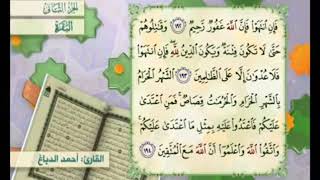 الجزء الثاني
البقرة
فَإِنِ انتَهَوْا فَإِنَّ اللَّهَ غَفُورٌ رَّحِيمٌ ١٩٢ وَقَاتِلُوهُمْ
حَتَّى لَا تَكُونَ فِتْنَةٌ وَيَكُونَ الدِّينُ لِلَّهِ فَإِنِ انتَهَوْا
فَلَا عُدْوَانَ إِلَّا عَلَى الظَّالِمِينَ ١٩٣ الشَّهْرُ الْحَرَامُ
بِالشَّهْرِ الْحَرَامِ وَالْحُرُمَاتُ قِصَاصٌ فَمَنِ اعْتَدَى
عَلَيْكُمْ فَاعْتَدُوا عَلَيْهِ بِمِثْلِ مَا اعْتَدَى عَلَيْكُمْ
وَاتَّقُوا اللَّهَ وَاعْلَمُوا أَنَّ اللَّهَ مَعَ الْمُتَّقِينَ ١٩٤
القارئ: أحمد الدباغ